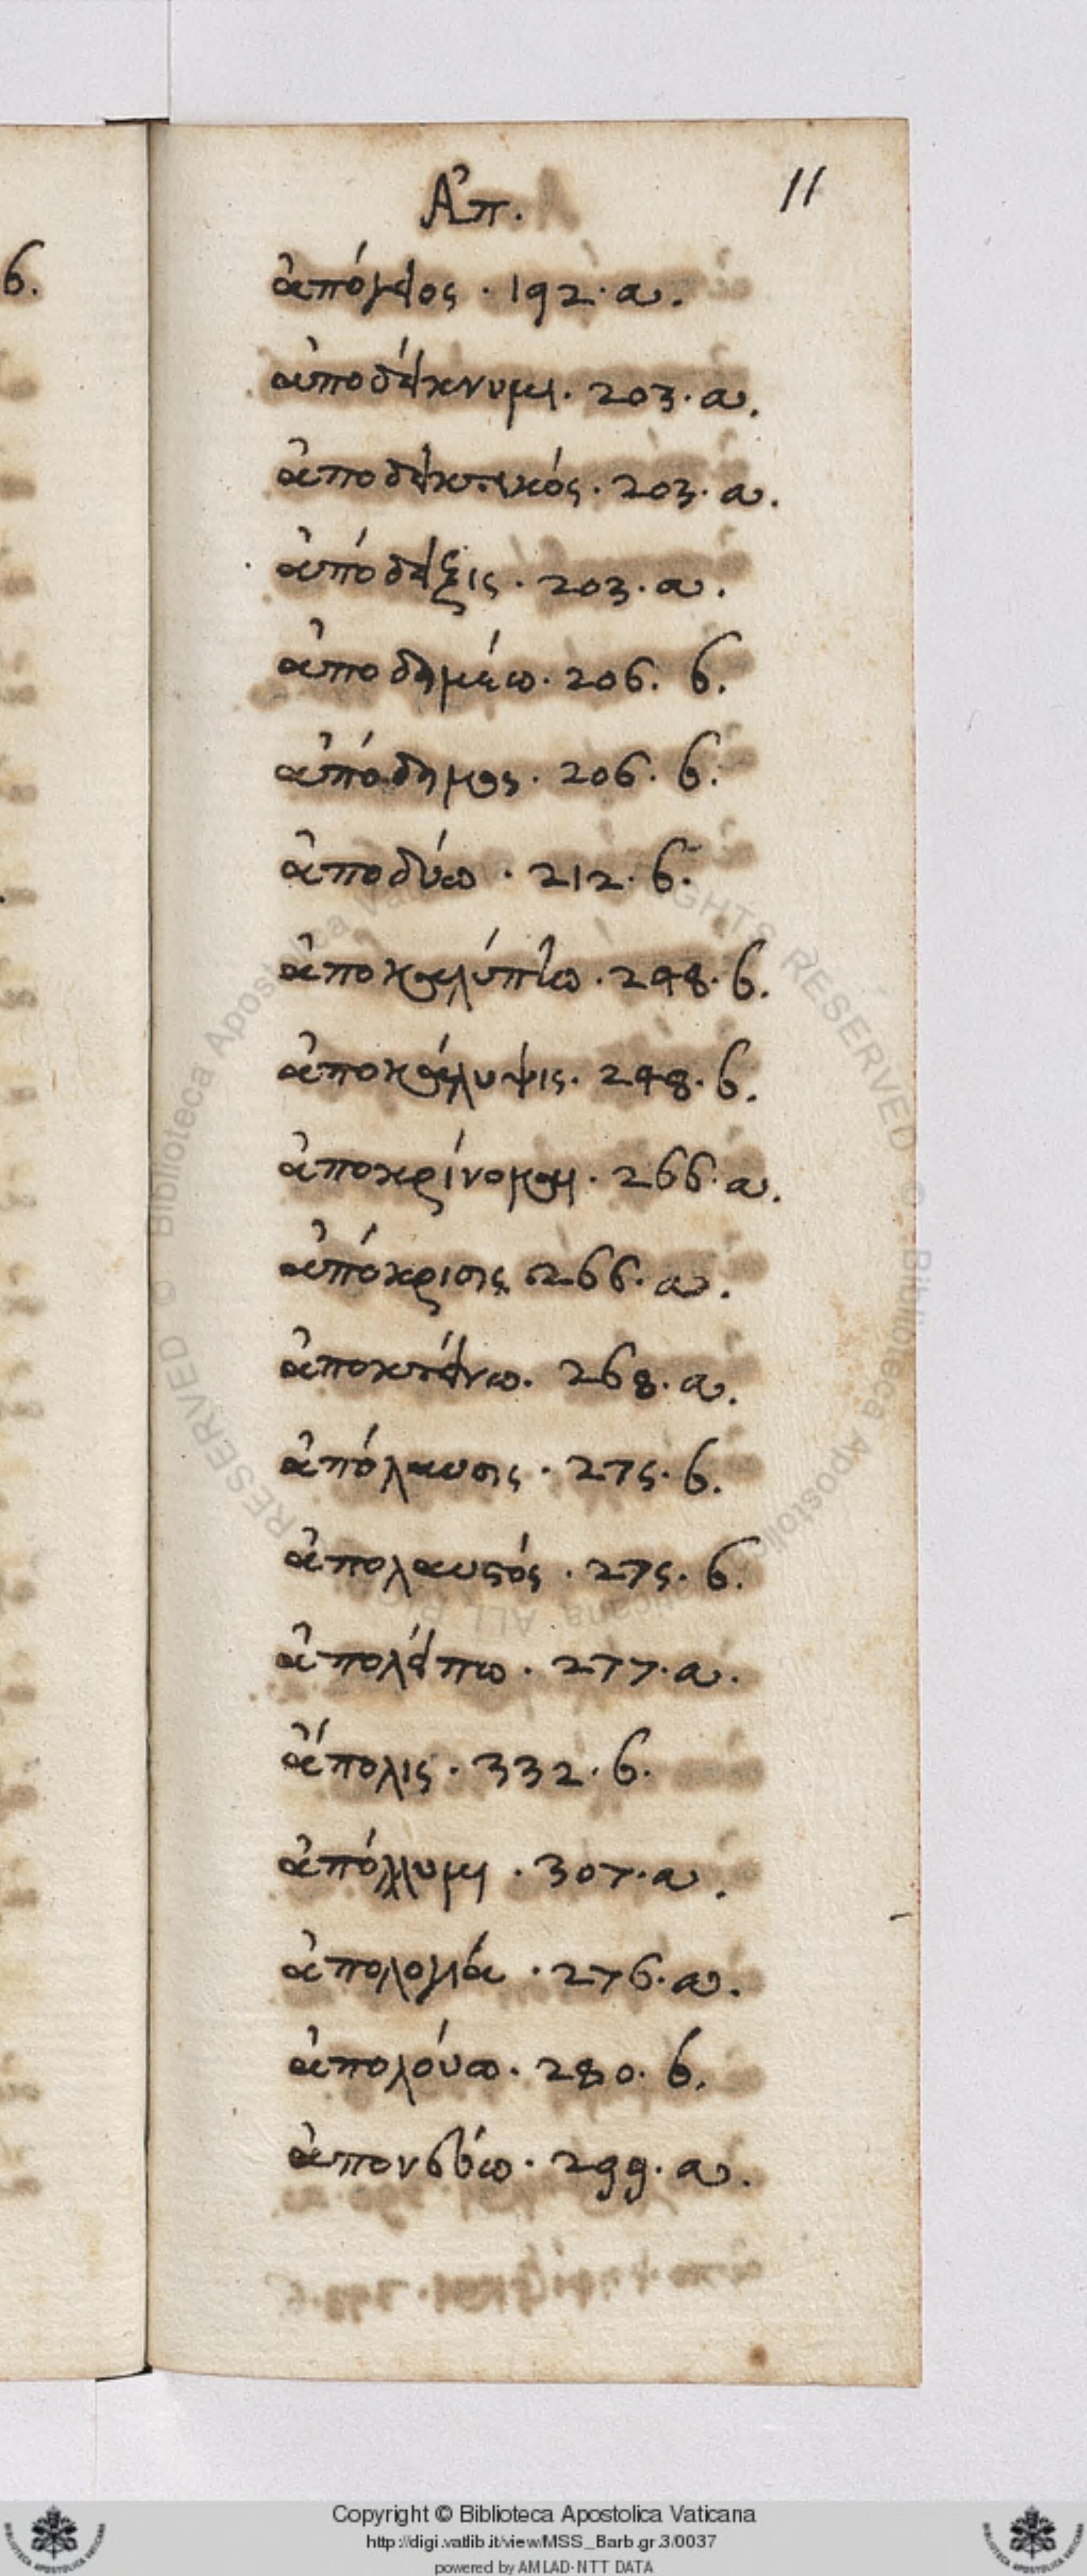 Ἀπ.
11
6.
ἀπόγειος · 192 · a.
ἀποδείκνυμι · 203 · a.
ἀποδεικτικός · 203 · a.
ἀπόδειξις · 203 · a.
ἀποδημέω · 206 · b.
ἀπόδημος · 206 · b.
ἀποδύω · 212 · b.
ἀποκαλύπτω · 248 · b.
ἀποκάλυψις · 248 · b.
ἀποκρίνομαι · 266 · a.
ἀπόκρισις 266 · a.
ἀποκτείνω · 268 · a.
ἀπόλαυσις · 275 · b.
ἀπολαυστός · 275 · b.
ἀπολείπω · 277 · a.
ἄπολις · 332 · b.
ἀπόλλυμι · 307 · a.
ἀπολογία · 276 · a.
ἀπολούω · 280 · b.
299 · a.
Copyright © Biblioteca Apostolica Vaticana
http://digi.vatlib.it/view/MSS_Barb.gr.3/0037
powered by AMLAD-NTT DATA